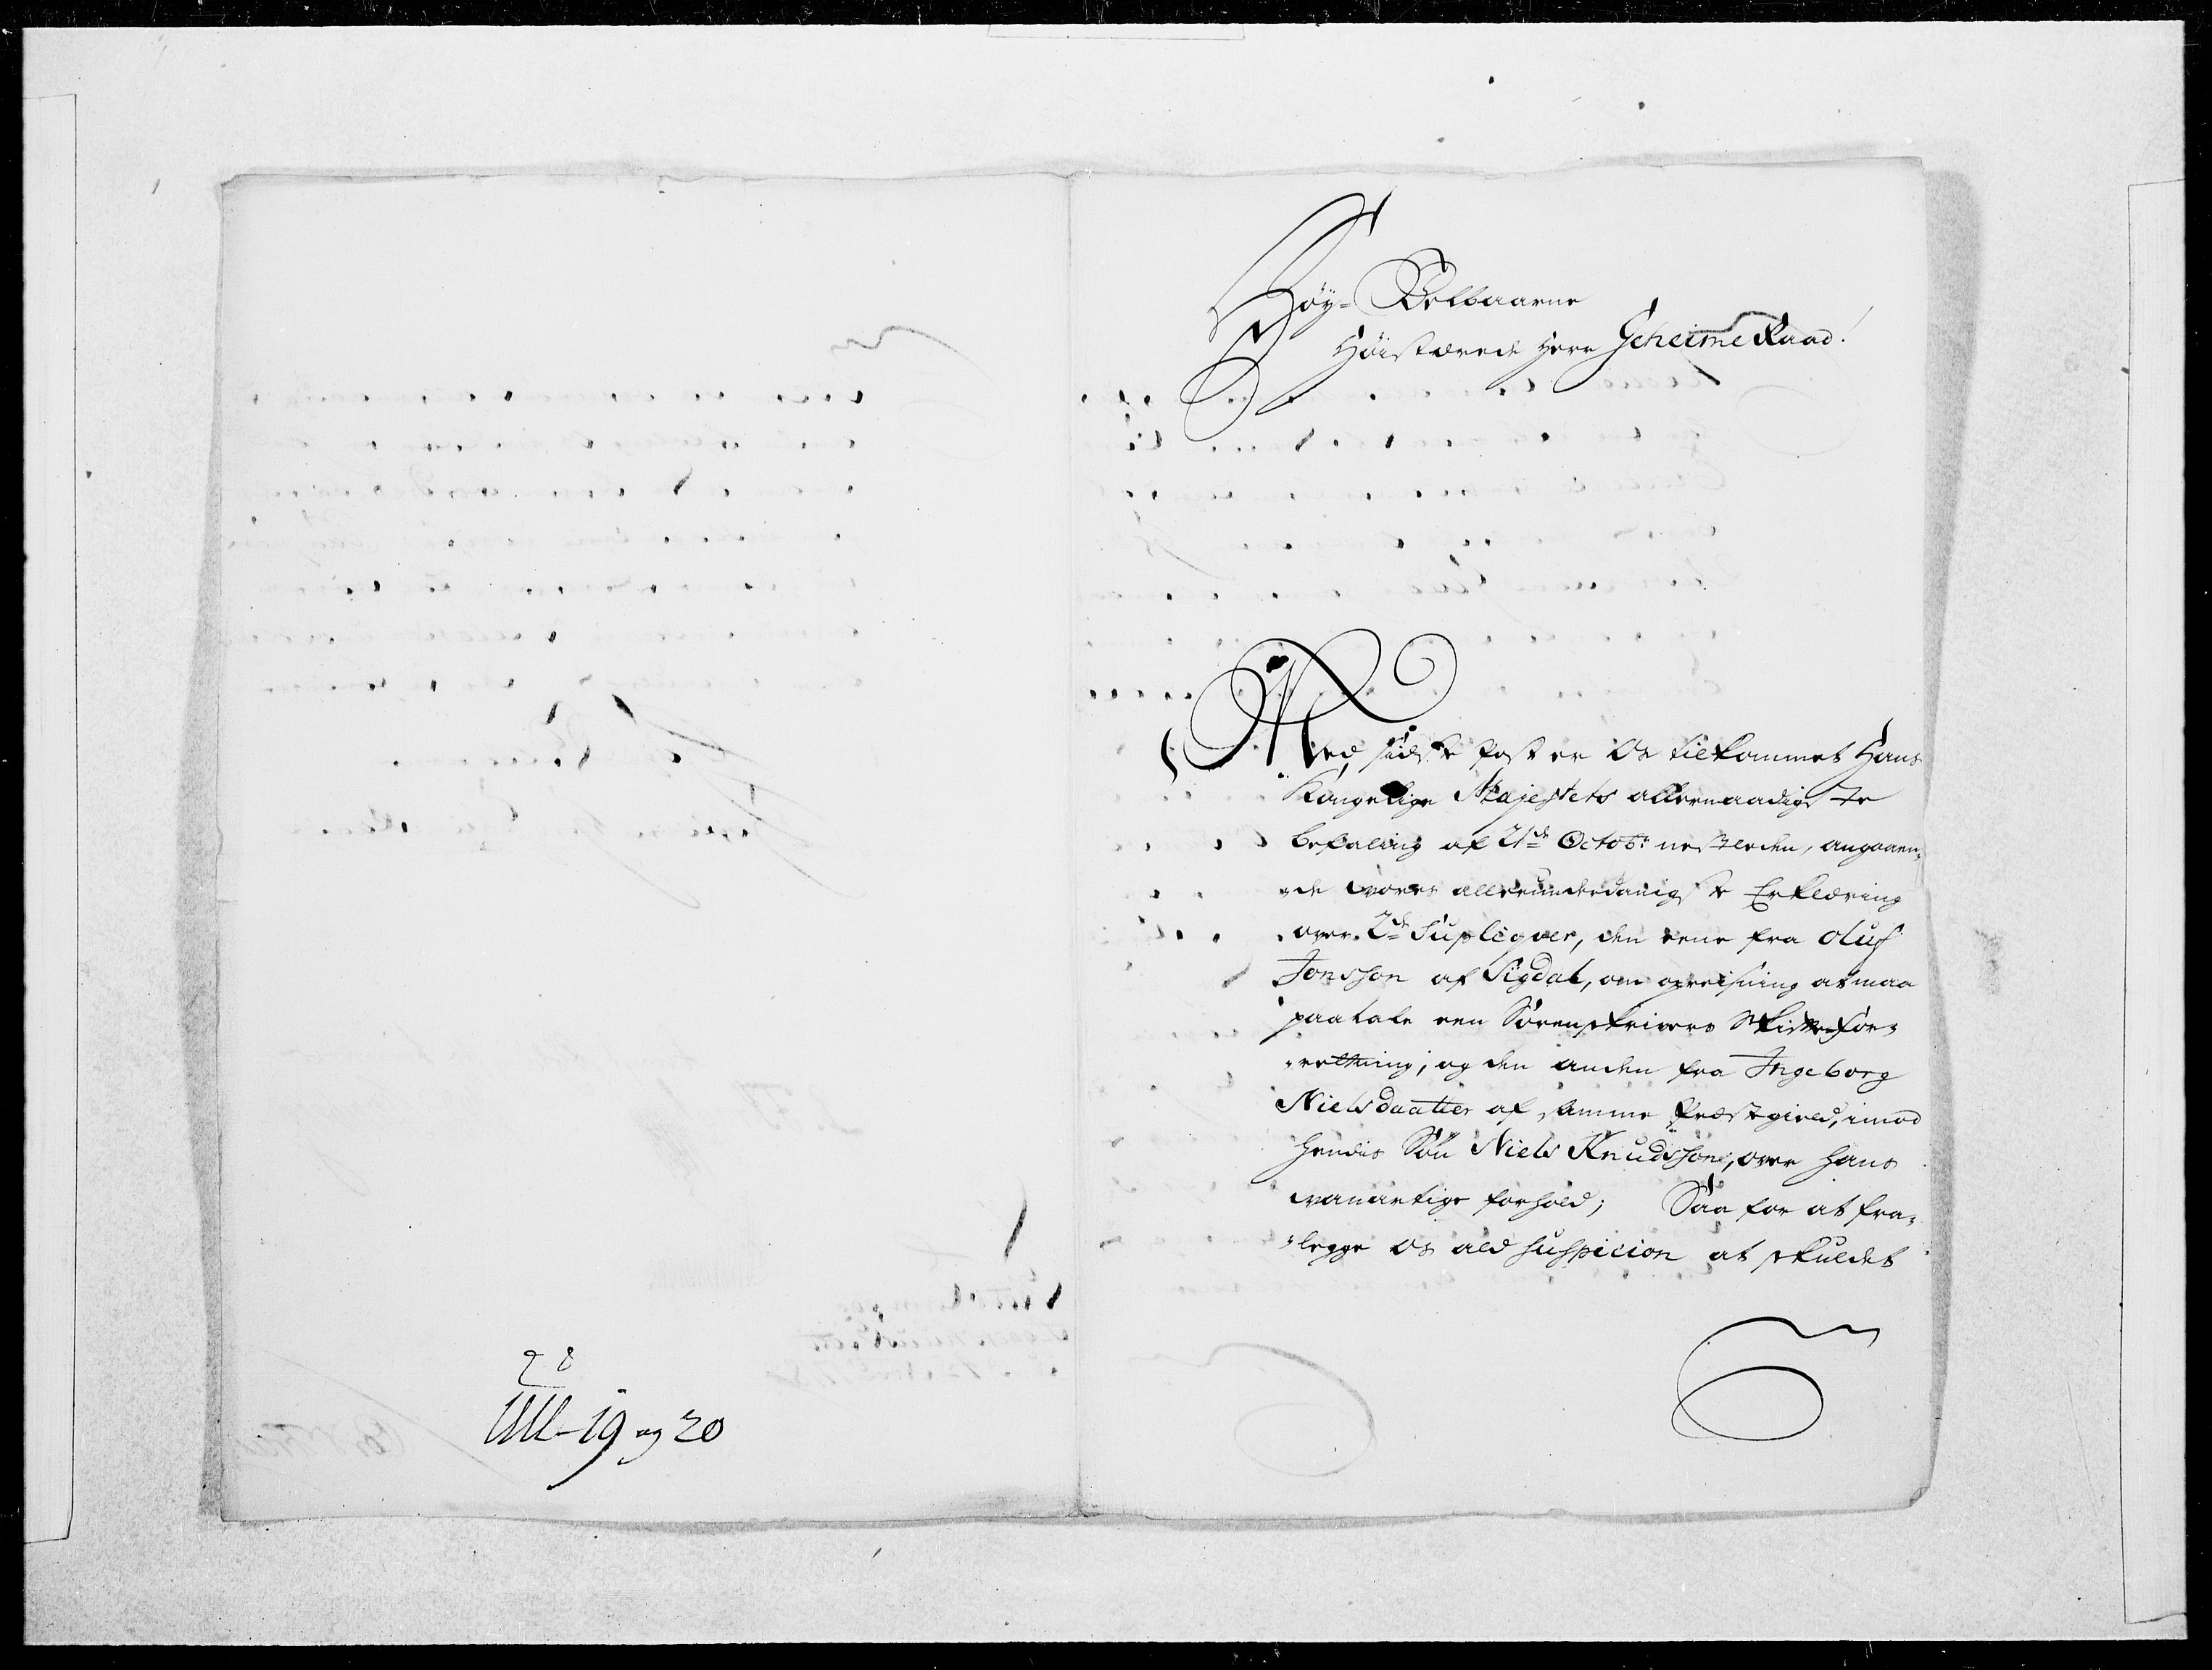 Høy-Velbaarne
Høistærede Herr Geheime Raad!
Med sidste Post er Os tilkommet Hans
Kongelige Majestets allernaadigste
befaling af 21de Octobr nestleden, angaaen-
-de vores allerunderdanigste Erklæring
over 2de Supliqver, den eene fra Oluf
Jonsson af Sigdal, om opreisning at maa
paatale een Sorenskrivers Skiftefor-
-retning; og den anden fra Ingeborg
Nielsdaatter af samme Præstegield, imod
hendes Søn Niels Knudssøn, over hans
vanartige forhold; Saa for at fra-
-legge Os ald suspicion at skuldet
28
19 og 20